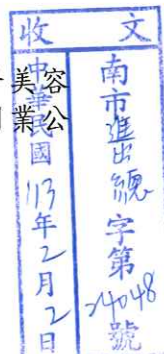 收文
南市進出總字第24048號
中華民國113年2月2日
美容
業公